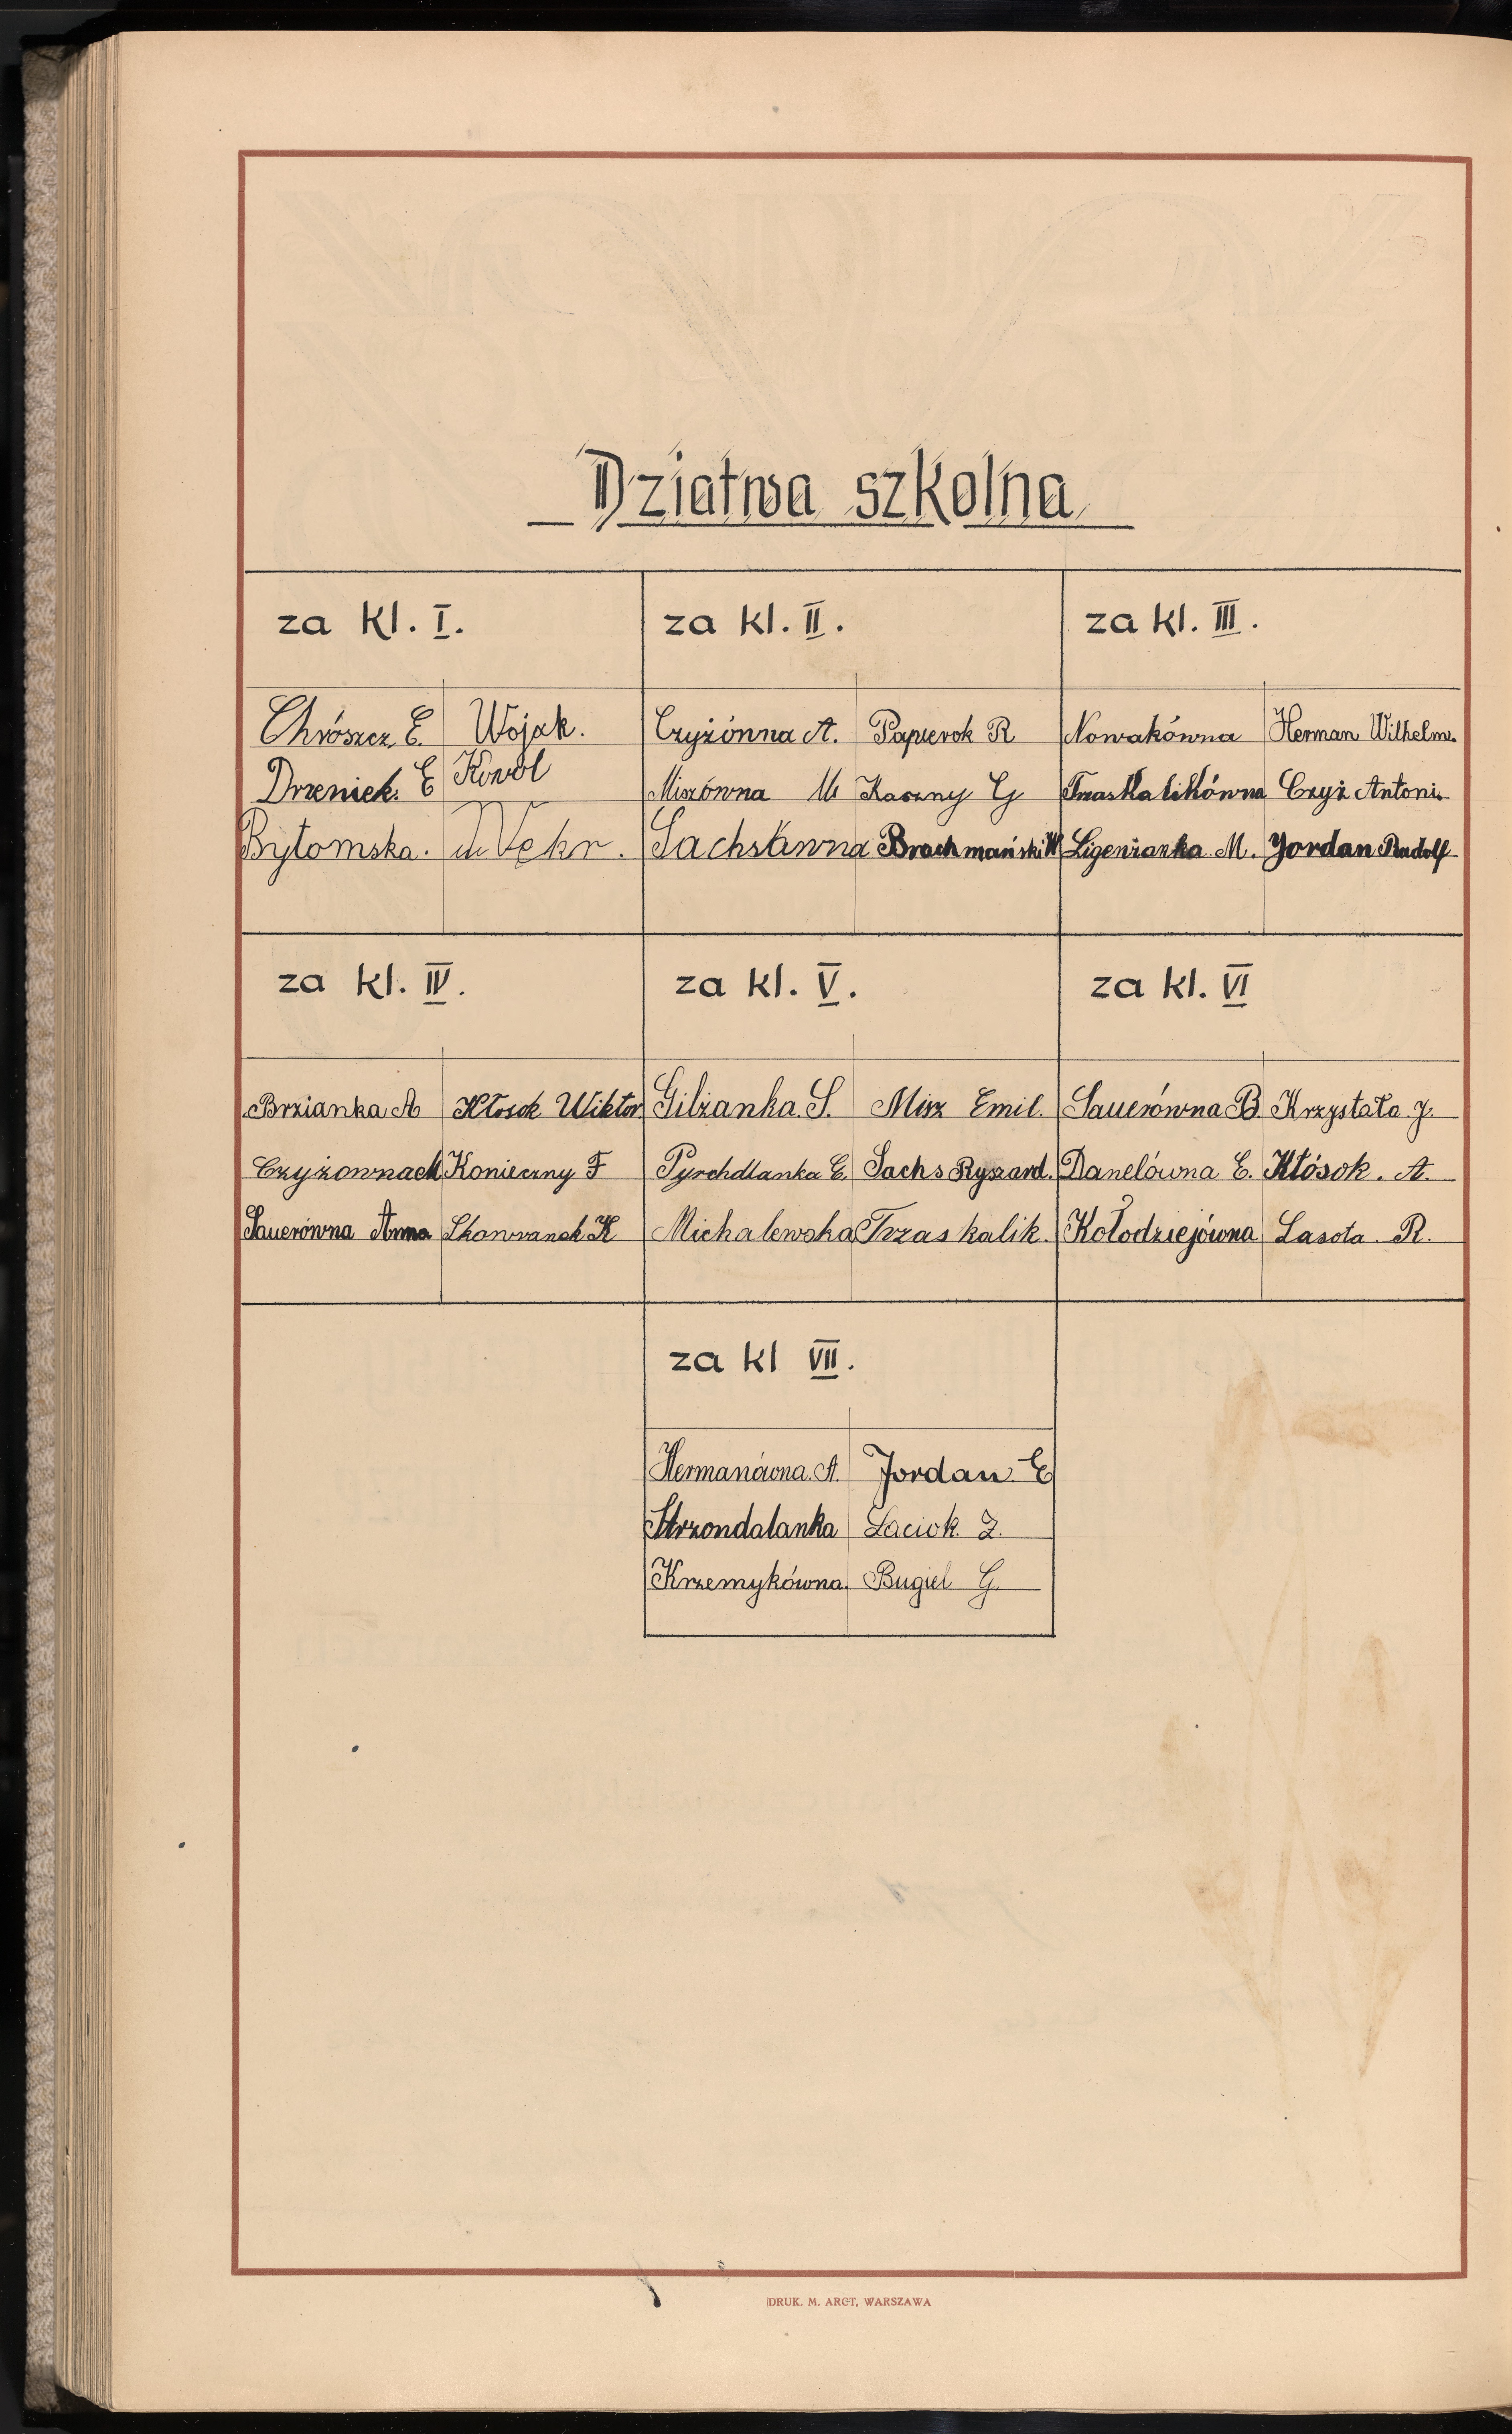 Dziatwa szkolna
za kl. I. za kl. II. za kl. III.
Chrószcz E. Wojak. Czyżónna A. Papierok R Nowakówna Herman Wilhelm.
Drzeniek. E Kowol Miszówna M Kaszny G Trzaskalikówna Czyż Antoni.
Bytomska. Sachsanna Brachmański W Ligenzanka M. Jordan Rudolf
za kl. IV. za kl. V. za kl. VI
Brzianka A Kłosok Wiktor Gilżanka. S. Misz Emil. Sauerówna B. Krzystała J.
Czyżownach Konieczny F Pyrchdlanka E. Sachs Ryszard. Danelówna E. Kłósok. A.
Sauerówna Anna Skowranek K Michalewska Trzaskalik. Kołodziejówna Lasota R.
za kl VII.
Hermanówna. A. Jordan. E
Strzondalanka Laciok. J.
Krzemykówna. Bugiel G.
DRUK. M. ARCT, WARSZAWA